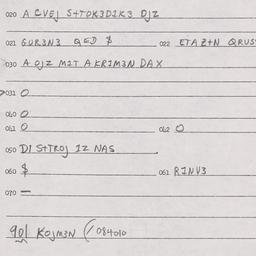 020 A CVEJ S+TOK3D1K3 OJZ
021 GUR3N3 QED $ 022 ETA Z+N QRUS
030 A OJZ M1T A KR1M3N DAX
031 O
040 O
041 O 042 O
050 D1 S+TROJ 1Z NAS
060 $ 061 R1NV3
070 —
901 KOJM3N (/084010